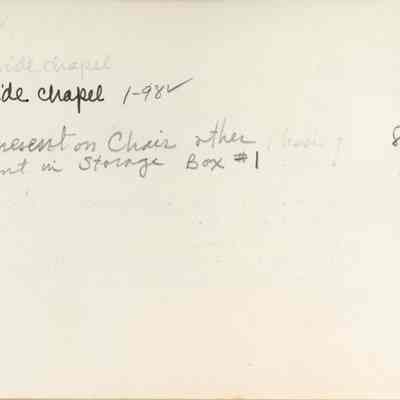 ide chapel
ide chapel 1-98✓
resent on Chair other 8
nt in Storage Box #1